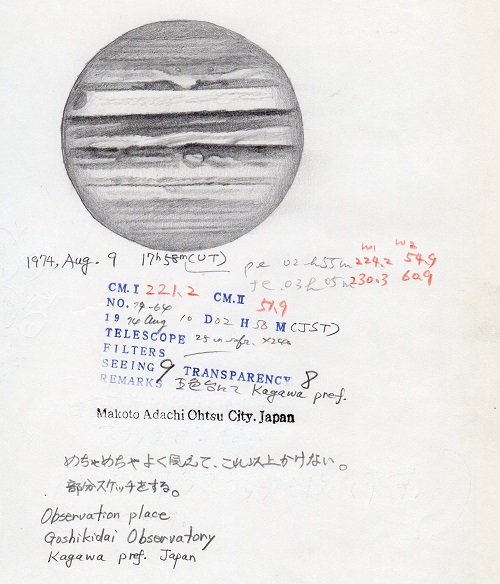 W1 W2
1974, Aug. 9 17h 58m (UT) pe 02h 55m 224.2 54.9
fe. 03h 05m 230.3 60.9
CM.I 221.2 CM.II 51.9
NO. 74-64
1974 Aug 10 D 02 H 58 M (JST)
TELESCOPE 25 cm refr.
FILTERS
SEEING 9 TRANSPARENCY 8
REMARKS 五色台にて Kagawa pref.
Makoto Adachi Ohtsu City. Japan
めちゃめちゃよく見えて、これ以上かけない。
部分スケッチをする。
Observation place
Goshikidai Observatory
Kagawa pref. Japan